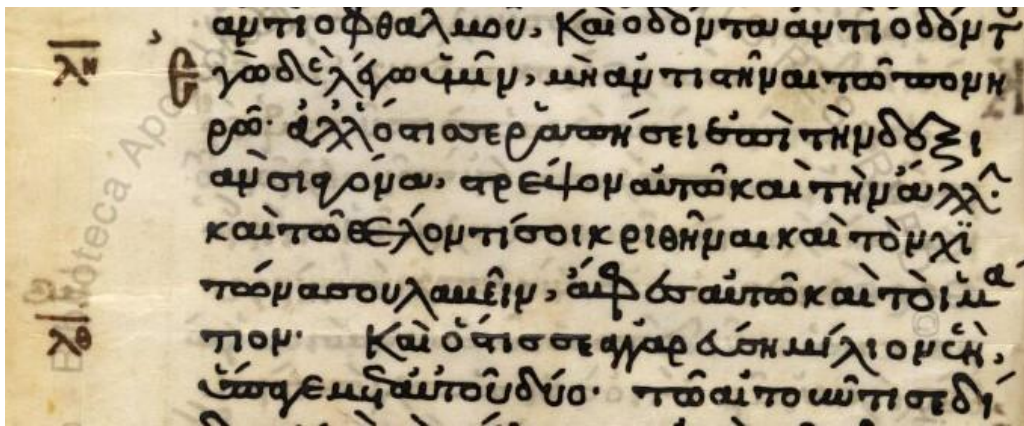 ἀντι οφθαλμου, Καὶ οδόντα ἀντι οδόντ
λη Εγὼ δὲ λέγω ὑμῖν, μὴ ἀντιστῆναι τῶ πονη
ρῶ· ἀλλ ὅστις σε ῥαπήσει ἐπὶ τὴν δεξι
ὰν σιαγόνα, στρέψον αὐτῶ καὶ τὴν ἄλλ·
καὶ τῶ θέλοντί σοι κριθῆναι καὶ τὸν χϊ
τῶνα σου λαβεῖν, ἄφες αὐτῶ καὶ τὸ ἱμα
λθ τιον· Καὶ ὅστις σε αγγαρεύση μίλιον ἓν,
ὕπαγε μετ αὐτοῦ δύο· τῶ αἰτοῦντι σε δί